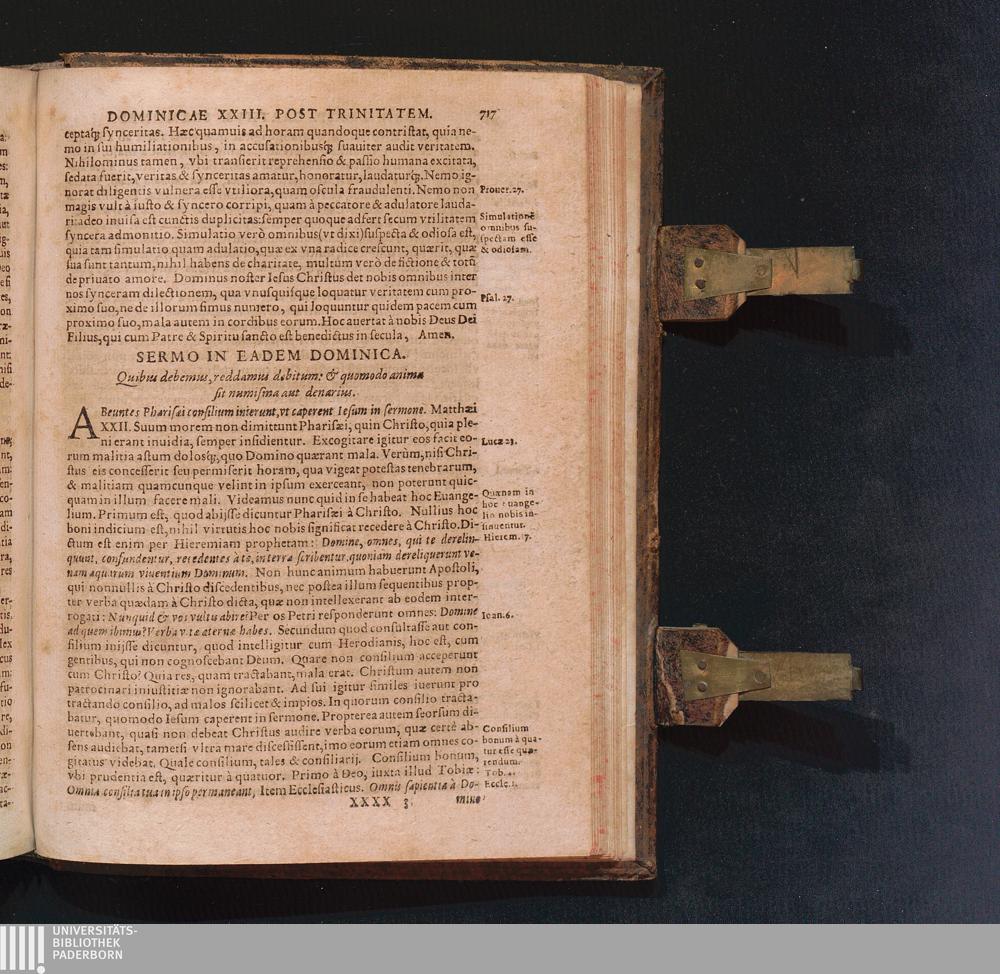 DOMINICAE XXIII. POST TRINITATEM. 717
ceptaſq; ſynceritas. Hæc quamuis ad horam quandoque contriſtat, quia ne-
mo in ſui humiliationibus, in accuſationibuſq; ſuauiter audit veritatem.
Nihilominus tamen, vbi tranſierit reprehenſio & paſſio humana excitata,
ſedata fuerit, veritas & ſynceritas amatur, honoratur, laudaturq;. Nemo ig-
norat diligentis vulnera eſſe vtiliora, quam oſcula fraudulenti. Nemo non
Prouer. 27.
magis vult à iuſto & ſyncero corripi, quam à peccatore & adulatore lauda-
ri: adeo inuiſa eſt cunctis duplicitas: ſemper quoque adfert ſecum vtilitatem
ſyncera admonitio. Simulatio verò omnibus (vt dixi) ſuſpecta & odioſa eſt,
Simulationē
omnibus ſu-
ſpectam eſſe
& odioſam.
quia tam ſimulatio quam adulatio, quæ ex vna radice creſcunt, quærit, quæ
ſua ſunt tantum, nihil habens de charitate, multùm verò de fictione & totū
de priuato amore. Dominus noſter Ieſus Chriſtus det nobis omnibus inter
nos ſynceram dilectionem, qua vnuſquiſque loquatur veritatem cum pro-
ximo ſuo, ne de illorum ſimus numero, qui loquuntur quidem pacem cum
Pſal. 27.
proximo ſuo, mala autem in cordibus eorum. Hoc auertat à nobis Deus Dei
Filius, qui cum Patre & Spiritu ſancto eſt benedictus in ſecula, Amen.
SERMO IN EADEM DOMINICA.
Quibus debemus, reddamus debitum: & quomodo anima
ſit numiſma aut denarius.
ABeuntes Phariſæi conſilium inierunt, vt caperent Ieſum in ſermone. Matthæi
XXII. Suum morem non dimittunt Phariſæi, quin Chriſto, quia ple-
ni erant inuidia, ſemper inſidientur. Excogitare igitur eos facit eo-
Lucæ 23.
rum malitia aſtum doloſq;, quo Domino quærant mala. Verùm, niſi Chri-
ſtus eis conceſſerit ſeu permiſerit horam, qua vigeat poteſtas tenebrarum,
& malitiam quamcunque velint in ipſum exerceant, non poterunt quic-
quam in illum facere mali. Videamus nunc quid in ſe habeat hoc Euange-
Quænam in
hoc Euange-
lio nobis in-
ſinuentur.
lium. Primum eſt, quod abijſſe dicuntur Phariſæi à Chriſto. Nullius hoc
boni indicium eſt, nihil virtutis hoc nobis ſignificat recedere à Chriſto. Di-
ctum eſt enim per Hieremiam prophetam: Domine, omnes, qui te derelin-
Hierem. 17.
quunt, confundentur, recedentes à te, in terra ſcribentur, quoniam dereliquerunt ve-
nam aquarum viuentium Dominum. Non hunc animum habuerunt Apoſtoli,
qui nonnullis à Chriſto diſcedentibus, nec poſtea illum ſequentibus prop-
ter verba quædam à Chriſto dicta, quæ non intellexerant ab eodem inter-
rogati: Nunquid & vos vultis abire? Per os Petri reſponderunt omnes: Domine
Ioan. 6.
ad quem ibimus? Verba vitæ æternæ habes. Secundum quod conſultaſſe aut con-
ſilium inijſſe dicuntur, quod intelligitur cum Herodianis, hoc eſt, cum
gentibus, qui non cognoſcebant Deum. Quare non conſilium acceperunt
cum Chriſto? Quia res, quam tractabant, mala erat. Chriſtum autem non
patrocinari iniuſtitiæ non ignorabant. Ad ſui igitur ſimiles iuerunt pro
tractando conſilio, ad malos ſcilicet & impios. In quorum conſilio tracta-
batur, quomodo Ieſum caperent in ſermone. Propterea autem ſeorſum di-
uertebant, quaſi non debeat Chriſtus audire verba eorum, quæ certè ab-
ſens audiebat, tametſi vltra mare diſceſſiſſent, imo eorum etiam omnes co-
gitatus videbat. Quale conſilium, tales & conſiliarij. Conſilium bonum,
Conſilium
bonum à qua-
tur eſſe quæ-
rendum.
Tob. 4.
vbi prudentia eſt, quæritur à quatuor. Primo à Deo, iuxta illud Tobiæ:
Omnia conſilia tua in ipſo permaneant, Item Eccleſiaſticus. Omnis ſapientia à Do-
Eccle. 1.
XXXX 3 mino
UNIVERSITÄTS-
BIBLIOTHEK
PADERBORN